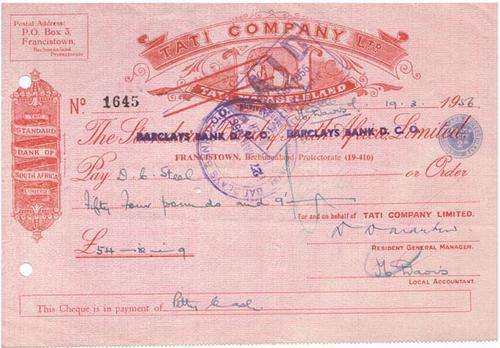 Postal Address:
P.O. Box 3,
Francistown,
Bechuanaland
Protectorate
TATI COMPANY LTD
PAID
No 1645
19. 3. 1956
THE
STANDARD
BANK OF
SOUTH AFRICA
LIMITED
The Standard Limited
BARCLAYS BANK D.C.O. BARCLAYS BANK D.C.O.
FRANCISTOWN, Bechuanaland Protectorate (19-416)
Pay D. C. Steal or Order
Fifty four pounds and 9
For and on behalf of TATI COMPANY LIMITED.
£54-8-9
RESIDENT GENERAL MANAGER.
LOCAL ACCOUNTANT.
This Cheque is in payment of Petty Cash